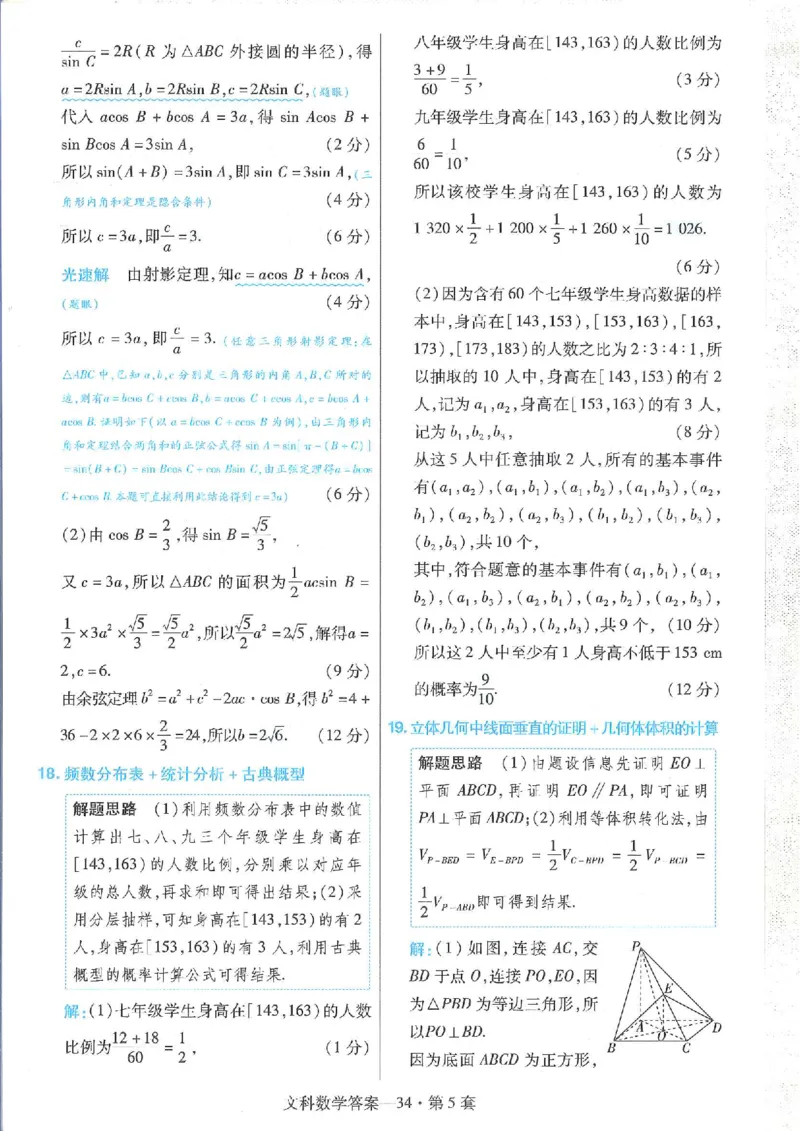 c/sin C=2R(R 为△ABC 外接圆的半径),得
a=2Rsin A,b=2Rsin B,c=2Rsin C,(题眼)
代入 acos B+bcos A=3a,得 sin Acos B+
sin Bcos A=3sin A, (2分)
所以 sin(A+B)=3sin A,即 sin C=3sin A,(三
角形内角和定理是隐含条件) (4分)
所以 c=3a,即c/a=3. (6分)
光速解 由射影定理,知c=acos B+bcos A,
(题眼) (4分)
所以 c=3a,即c/a=3.(任意三角形射影定理:在
△ABC 中,已知 a,b,c 分别是三角形的内角 A,B,C 所对的
边,则有a=bcos C+ccos B,b=acos C+ccos A,c=bcos A+
acos B.证明如下(以 a=bcos C+ccos B 为例),由三角形内
角和定理结合两角和的正弦公式得 sin A=sin[π-(B+C)]
=sin(B+C)=sin Bcos C+cos Bsin C,由正弦定理得a=bcos
C+ccos B.本题可直接利用此结论得到 c=3a) (6分)
(2)由 cos B=2/3,得 sin B=√5/3,
又 c=3a,所以 △ABC 的面积为1/2acsin B=
1/2×3a²×√5/3=√5/2a²,所以√5/2a²=2√5,解得a=
2,c=6. (9分)
由余弦定理b²=a²+c²-2ac·cos B,得 b²=4+
36-2×2×6×2/3=24,所以b=2√6. (12分)
18.频数分布表+统计分析+古典概型
解题思路 (1)利用频数分布表中的数值
计算出七、八、九三个年级学生身高在
[143,163)的人数比例,分别乘以对应年
级的总人数,再求和即可得出结果;(2)采
用分层抽样,可知身高在[143,153)的有2
人,身高在[153,163)的有3人,利用古典
概型的概率计算公式可得结果.
解:(1)七年级学生身高在[143,163)的人数
比例为(12+18)/60=1/2, (1分)
八年级学生身高在[143,163)的人数比例为
(3+9)/60=1/5, (3分)
九年级学生身高在[143,163)的人数比例为
6/60=1/10, (5分)
所以该校学生身高在[143,163)的人数为
1 320×1/2+1 200×1/5+1 260×1/10=1 026.
(6分)
(2)因为含有60个七年级学生身高数据的样
本中,身高在[143,153),[153,163),[163,
173),[173,183)的人数之比为2:3:4:1,所
以抽取的10人中,身高在[143,153)的有2
人,记为a₁,a₂,身高在[153,163)的有3人,
记为b₁,b₂,b₃, (8分)
从这5人中任意抽取2人,所有的基本事件
有(a₁,a₂),(a₁,b₁),(a₁,b₂),(a₁,b₃),(a₂,
b₁),(a₂,b₂),(a₂,b₃),(b₁,b₂),(b₁,b₃),
(b₂,b₃),共10个,
其中,符合题意的基本事件有(a₁,b₁),(a₁,
b₂),(a₁,b₃),(a₂,b₁),(a₂,b₂),(a₂,b₃),
(b₁,b₂),(b₁,b₃),(b₂,b₃),共9个, (10分)
所以这2人中至少有1人身高不低于153 cm
的概率为9/10. (12分)
19.立体几何中线面垂直的证明+几何体体积的计算
解题思路 (1)由题设信息先证明 EO⊥
平面 ABCD,再证明 EO∥PA,即可证明
PA⊥平面ABCD;(2)利用等体积转化法,由
V_{P-BED}=V_{E-BPD}=1/2V_{C-BPD}=1/2V_{P-BCD}=
1/2V_{P-ABD}即可得到结果.
解:(1)如图,连接 AC,交
BD于点O,连接PO,EO,因
为△PBD为等边三角形,所
以PO⊥BD.
因为底面ABCD为正方形,
P
E
A
O
D
B
C
文科数学答案—34·第5套